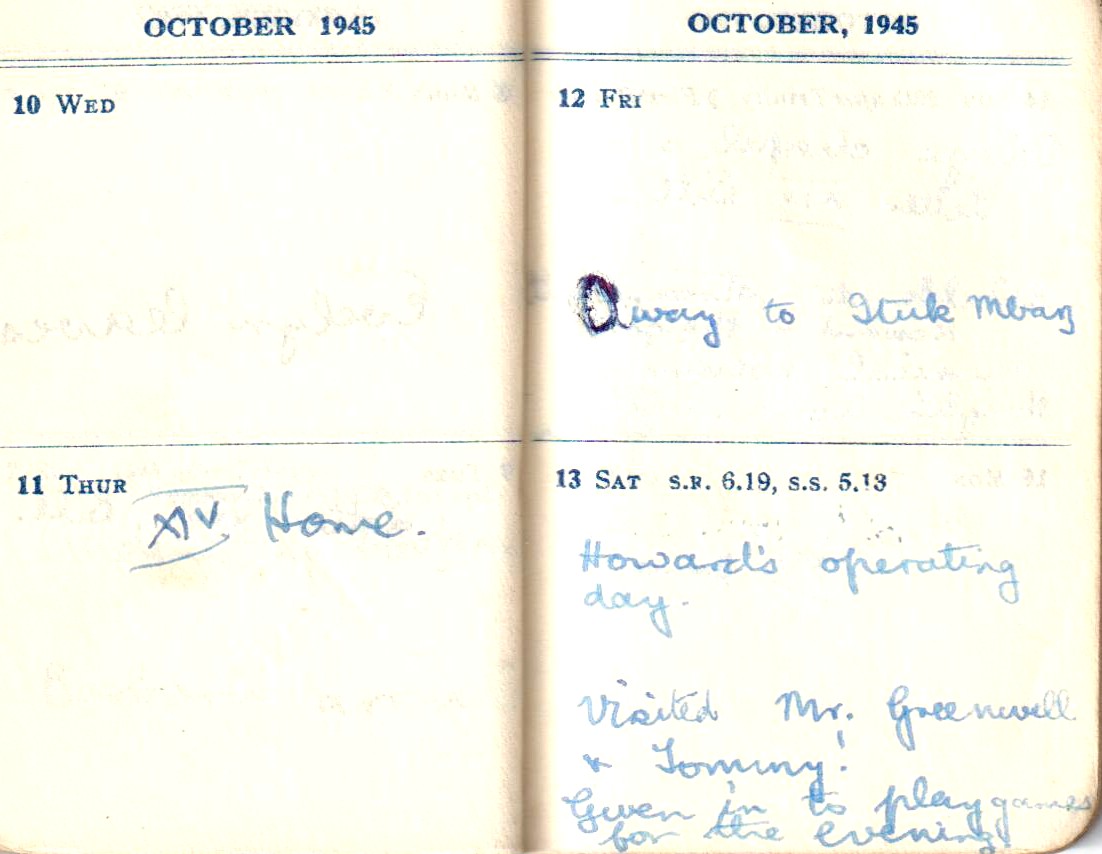 OCTOBER 1945
10 WED
11 THUR
XIV Home.
OCTOBER, 1945
12 FRI
Away to Ituk Mbang
13 SAT S.R. 6.19, S.S. 5.13
Howard's operating
day.
Visited Mr. Greenwell
& Tommy!
Gwen in to play games
for the evening.